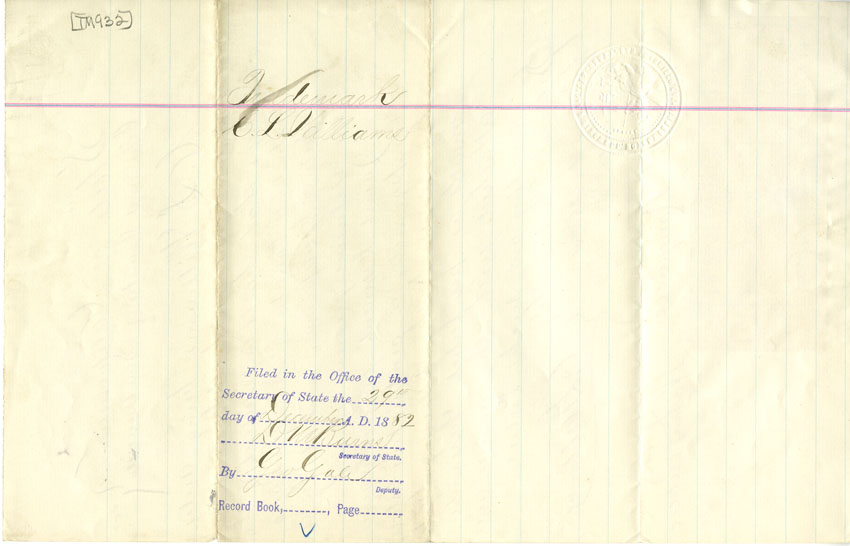 [TM932]
Trademark
C. T. Williams
Filed in the Office of the
Secretary of State the 29th
day of December A. D. 1882
Secretary of State.
By
Deputy.
Record Book, , Page